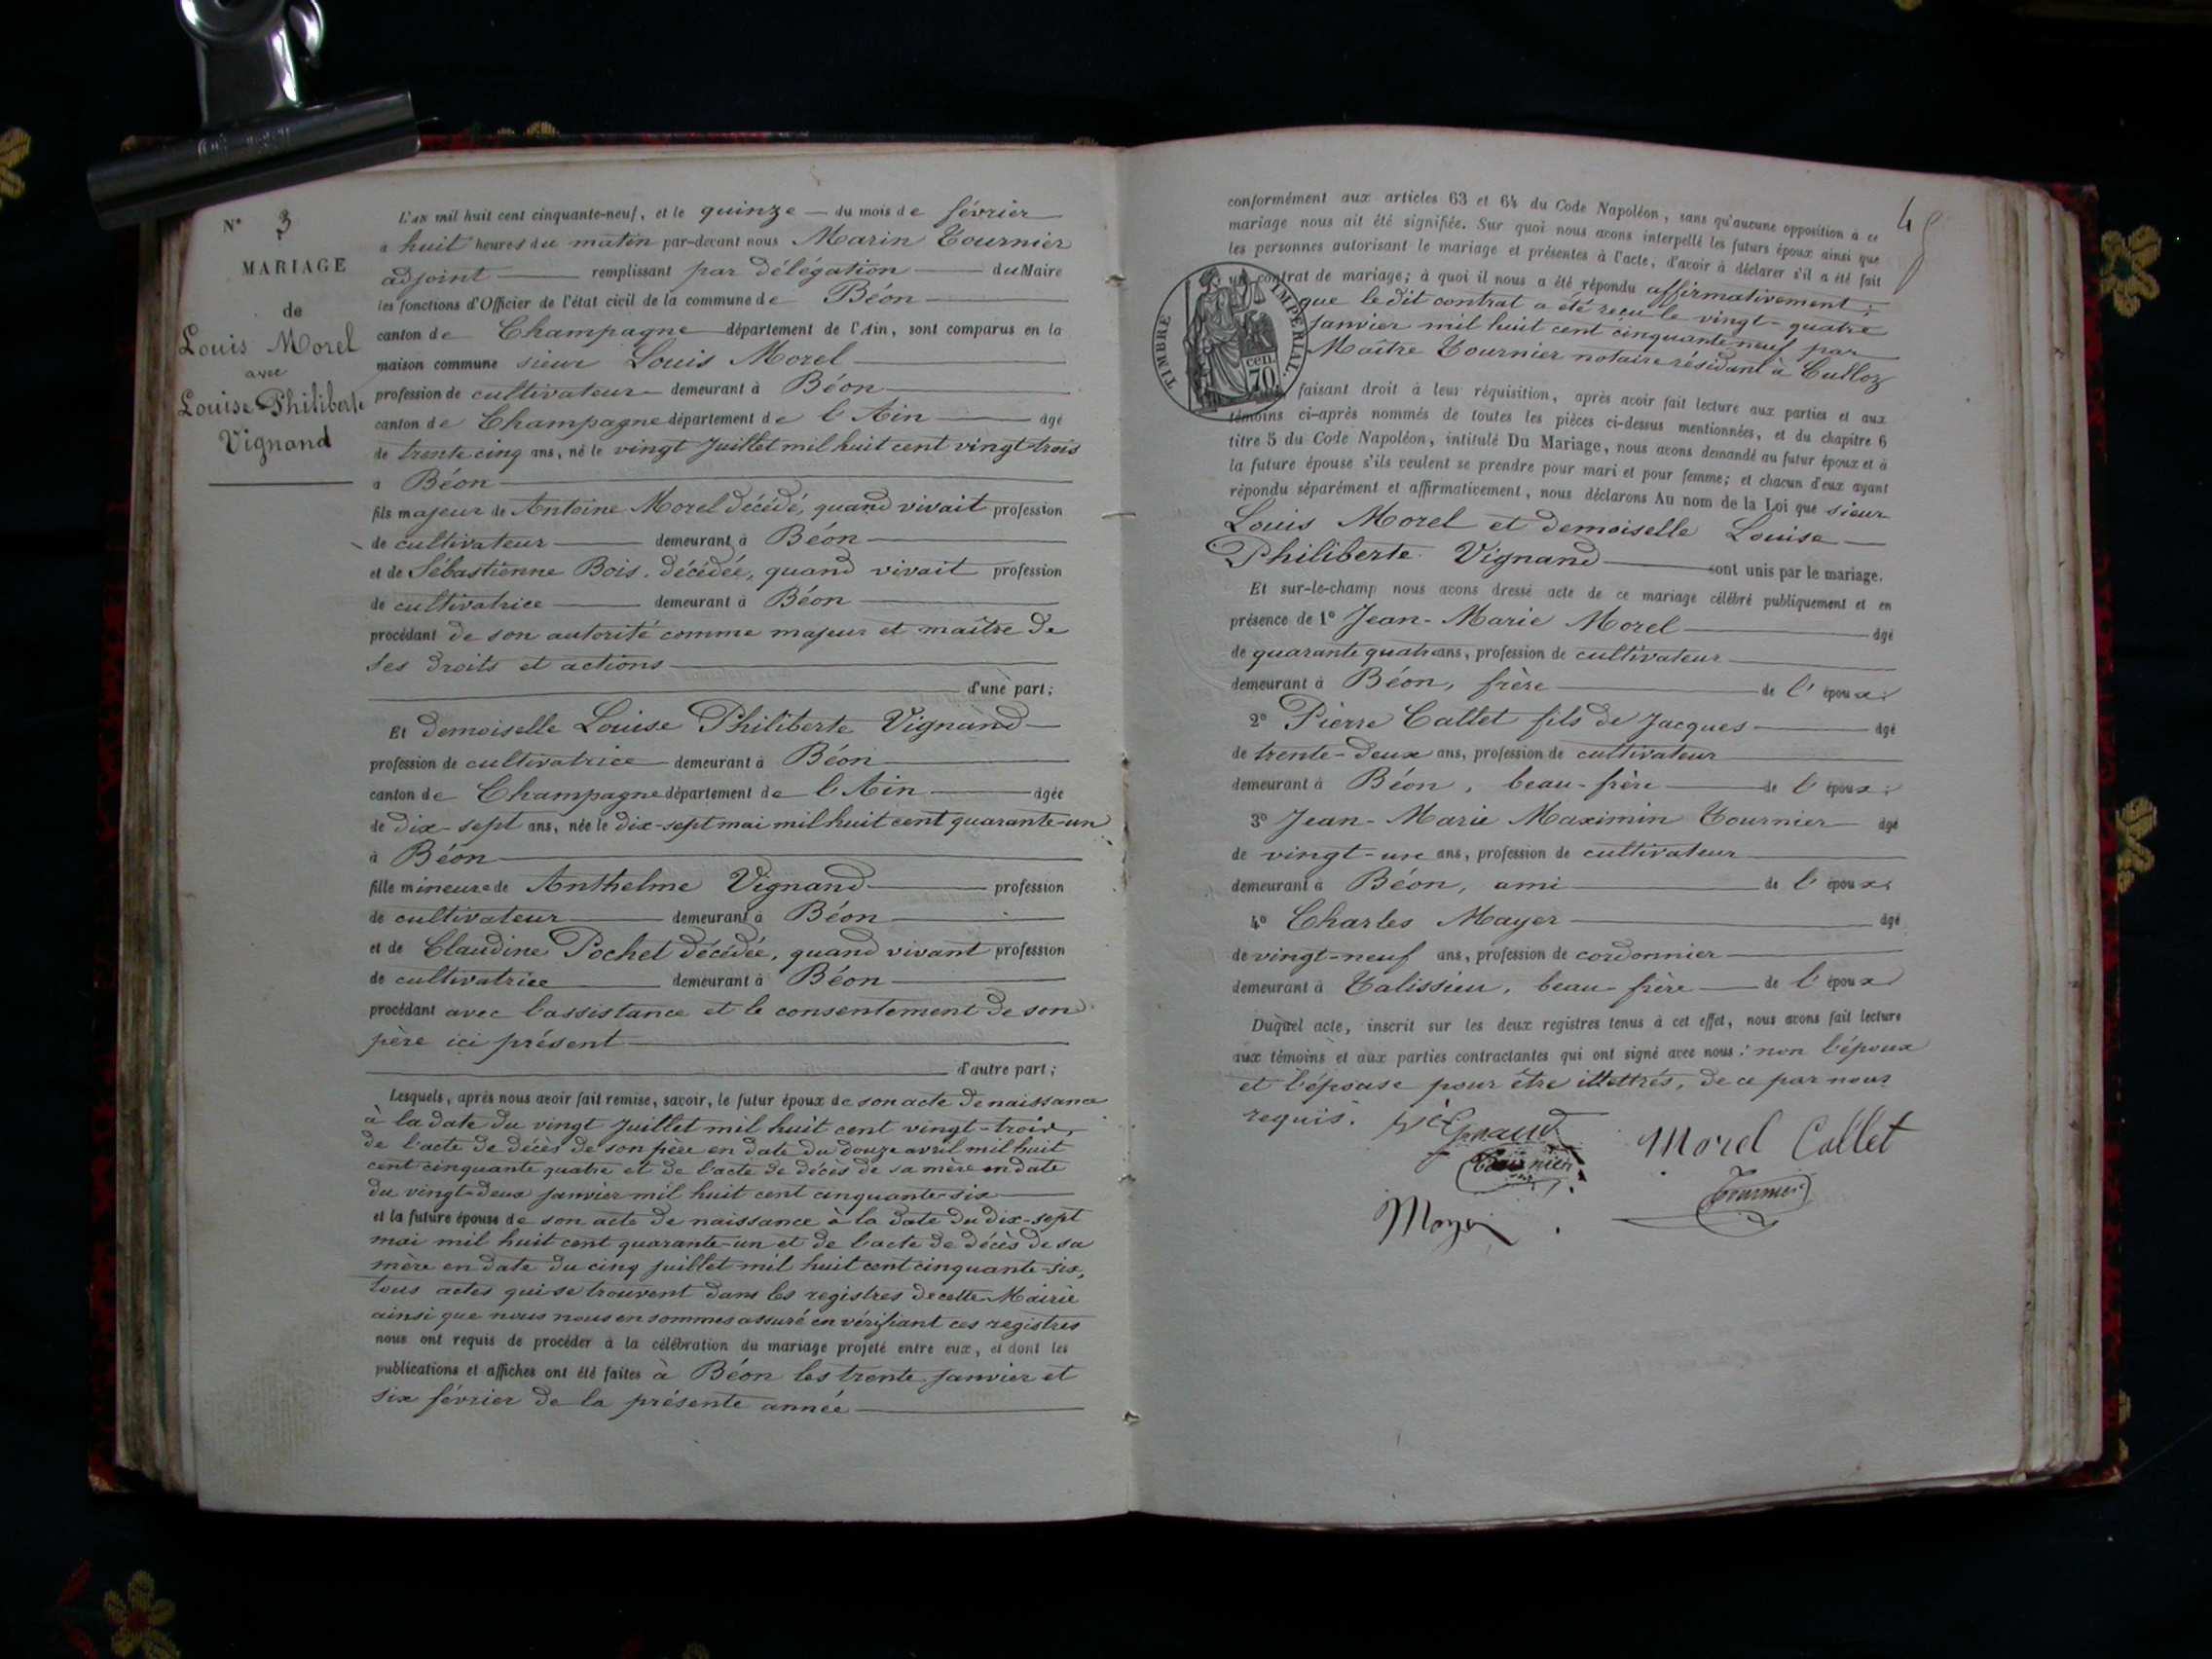 N° 3
MARIAGE
de
Louis Morel
avec
Louise Philiberte
Vignand
L'an mil huit cent cinquante-neuf, et le quinze du mois de février
a huit heures du matin par-devant nous Marin Tournier
adjoint remplissant par délégation du Maire
les fonctions d'Officier de l'état civil de la commune de Béon
canton de Champagne département de l'Ain, sont comparus en la
maison commune sieur Louis Morel
profession de cultivateur demeurant à Béon
canton de Champagne département de l'Ain âgé
de trente cinq ans, né le vingt Juillet mil huit cent vingt-trois
à Béon
fils majeur de Antoine Morel décédé, quand vivait profession
de cultivateur demeurant à Béon
et de Sébastienne Bois, décédée, quand vivait profession
de cultivatrice demeurant à Béon
procédant de son autorité comme majeur et maître de
ses droits et actions
d'une part;
Et demoiselle Louise Philiberte Vignand
profession de cultivatrice demeurant à Béon
canton de Champagne département de l'Ain âgée
de dix-sept ans, née le dix-sept mai mil huit cent quarante-un
à Béon
fille mineure de Anthelme Vignand profession
de cultivateur demeurant à Béon
et de Claudine Pochet décédée, quand vivant profession
de cultivatrice demeurant à Béon
procédant avec l'assistance et le consentement de son
père ici présent
d'autre part;
Lesquels, après nous avoir fait remise, savoir, le futur époux de son acte de naissance
à la date du vingt Juillet mil huit cent vingt-trois,
de l'acte de décès de son père en date du douze avril mil huit
cent cinquante quatre et de l'acte de décès de sa mère en date
du vingt-deux janvier mil huit cent cinquante-six
et la future épouse de son acte de naissance à la date du dix-sept
mai mil huit cent quarante-un et de l'acte de décès de sa
mère en date du cinq juillet mil huit cent cinquante-six,
tous actes qui se trouvent dans les registres de cette Mairie
ainsi que nous nous en sommes assuré en vérifiant ces registres
nous ont requis de procéder à la célébration du mariage projeté entre eux, et dont les
publications et affiches ont été faites à Béon les trente janvier et
six février de la présente année
conformément aux articles 63 et 64 du Code Napoléon, sans qu'aucune opposition à ce
mariage nous ait été signifiée. Sur quoi nous avons interpellé les futurs époux ainsi que
les personnes autorisant le mariage et présentes à l'acte, d'avoir à déclarer s'il a été fait
un contrat de mariage; à quoi il nous a été répondu affirmativement;
que le dit contrat a été reçu le vingt-quatre
janvier mil huit cent cinquante neuf par
Maître Tournier notaire résidant à Culloz
TIMBRE IMPERIAL
70 cen.
faisant droit à leur réquisition, après avoir fait lecture aux parties et aux
témoins ci-après nommés de toutes les pièces ci-dessus mentionnées, et du chapitre 6
titre 5 du Code Napoléon, intitulé Du Mariage, nous avons demandé au futur époux et à
la future épouse s'ils veulent se prendre pour mari et pour femme; et chacun d'eux ayant
répondu séparément et affirmativement, nous déclarons Au nom de la Loi que sieur
Louis Morel et demoiselle Louise
Philiberte Vignand sont unis par le mariage.
Et sur-le-champ nous avons dressé acte de ce mariage célébré publiquement et en
présence de 1° Jean-Marie Morel âgé
de quarante quatre ans, profession de cultivateur
demeurant à Béon, frère de l'époux;
2° Pierre Callet fils de Jacques âgé
de trente-deux ans, profession de cultivateur
demeurant à Béon, beau-frère de l'époux;
3° Jean-Marie Maximin Tournier âgé
de vingt-un ans, profession de cultivateur
demeurant à Béon, ami de l'époux;
4° Charles Mayer âgé
de vingt-neuf ans, profession de cordonnier
demeurant à Talissieu, beau-frère de l'époux
Duquel acte, inscrit sur les deux registres tenus à cet effet, nous avons fait lecture
aux témoins et aux parties contractantes qui ont signé avec nous; non l'époux
et l'épouse pour être illettrés, de ce par nous
requis.
Morel Callet
Tournier
Tournier
Mayer